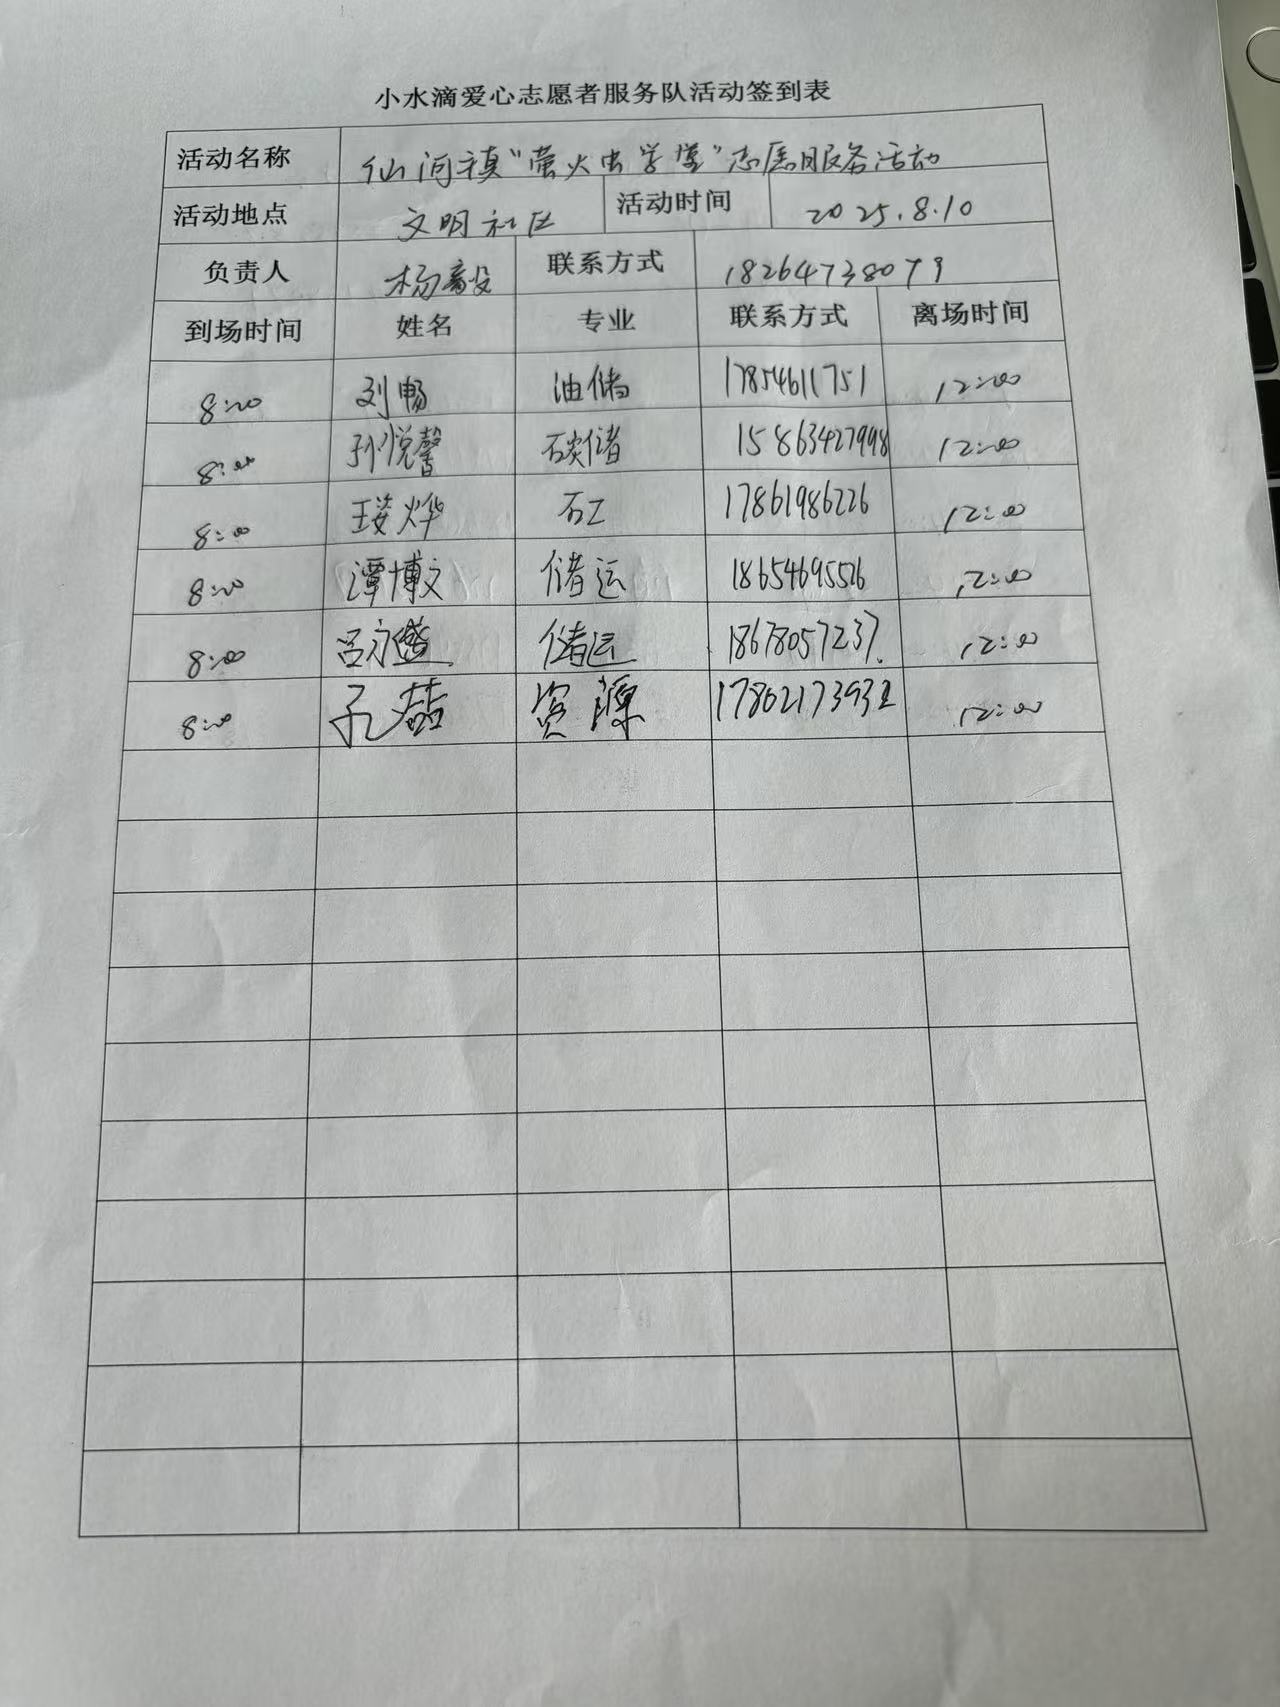 小水滴爱心志愿者服务队活动签到表
活动名称 仙河镇“萤火虫学堂”志愿服务活动
活动地点 文明社区 活动时间 2025.8.10
负责人 杨毅 联系方式 18264738079
到场时间 姓名 专业 联系方式 离场时间
8:00 刘畅 油储 17854611751 12:00
8:00 孙悦馨 碳储 15863427998 12:00
8:00 王姿烨 石工 17861986226 12:00
8:00 谭博文 储运 18654695526 12:00
8:00 吕永盛 储运 18678057237. 12:00
8:00 孔喆 资源 17862173932 12:00